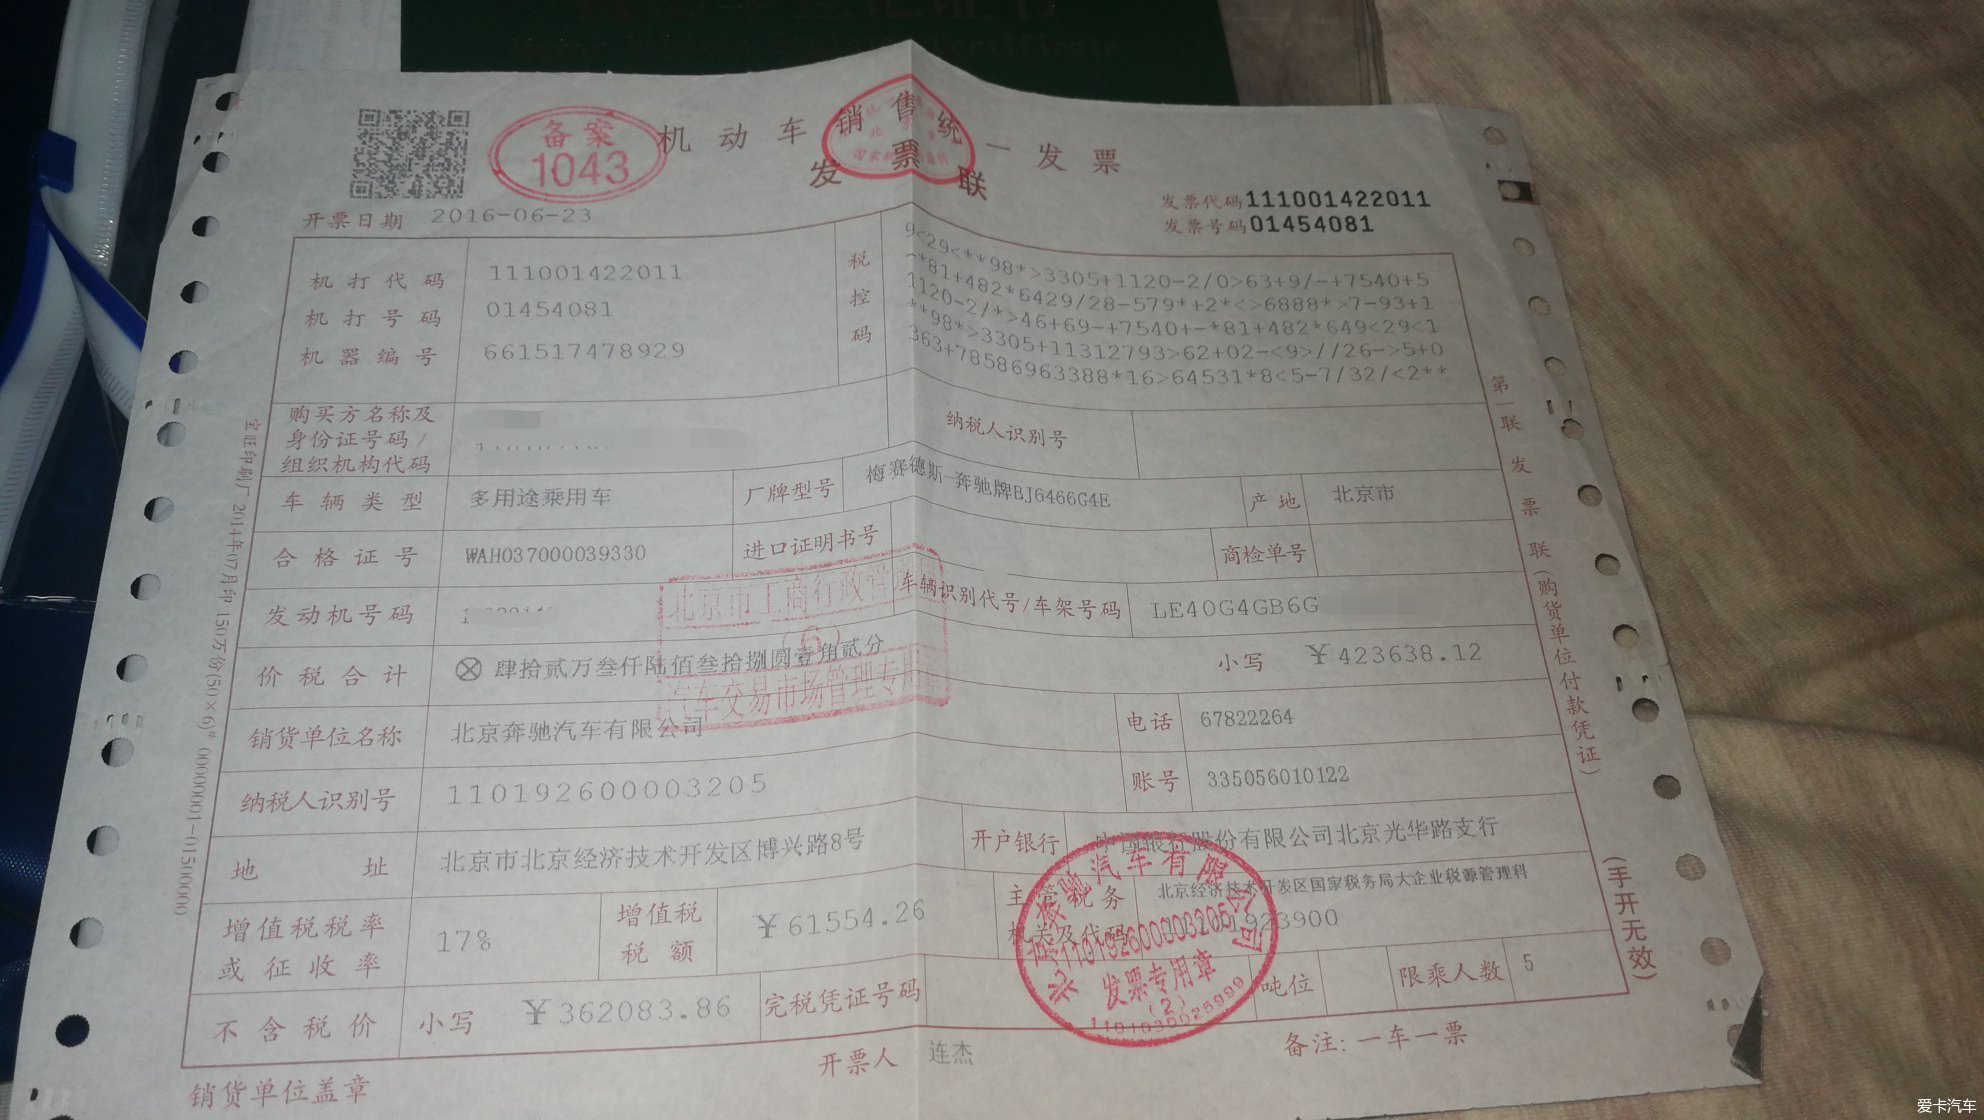 Certificate
备案
1043
机动车销售统一发票
发票联
发票代码111001422011
发票号码01454081
开票日期 2016-06-23
机打代码 111001422011
机打号码 01454081
机器编号 661517478929
税控码
9<29<**98*>3305+1120-2/0>63+9/-+7540+5
-*81+482*6429/28-579*+2*<>6888*>7-93+1
1120-2/*>46+69-+7540+-*81+482*649<29<1
**98*>3305+11312793>62+02-<9>//26->5+0
363+78586963388*16>64531*8<5-7/32/<2**
购买方名称及
身份证号码/
组织机构代码
纳税人识别号
车辆类型 多用途乘用车 厂牌型号 梅赛德斯-奔驰牌BJ6466G4E 产地 北京市
合格证号 WAH037000039330 进口证明书号 商检单号
发动机号码 车辆识别代号/车架号码 LE40G4GB6G
价税合计 ⊗ 肆拾贰万叁仟陆佰叁拾捌圆壹角贰分 小写 ¥423638.12
北京市工商行政管
(6)
汽车交易市场管理专用
销货单位名称 北京奔驰汽车有限公司 电话 67822264
纳税人识别号 110192600003205 账号 335056010122
地址 北京市北京经济技术开发区博兴路8号 开户银行 中国银行股份有限公司北京光华路支行
增值税税率
或征收率
17%
增值税
税额
¥61554.26
主管税务
机关及代码
北京经济技术开发区国家税务局大企业税源管理科
923900
不含税价 小写 ¥362083.86 完税凭证号码 吨位 限乘人数 5
北京奔驰汽车有限公司
110192600003205
发票专用章
(2)
销货单位盖章 开票人 连杰 备注:一车一票
第一联 发票联(购货单位付款凭证)
(手开无效)
宝旺印刷厂 2014年07月印 150万份(50×6)# 00000001-01500000
爱卡汽车